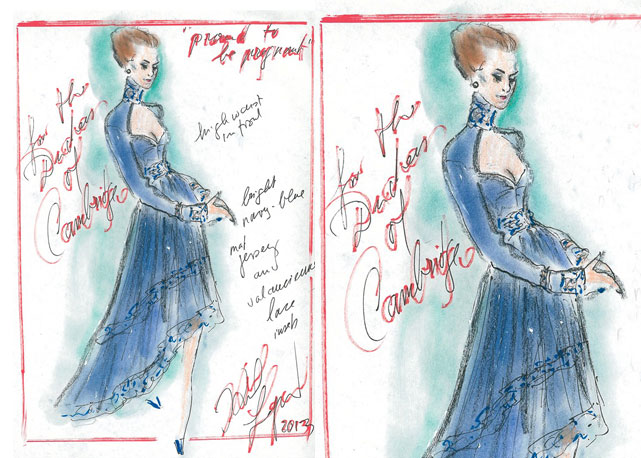 "proud to
be pregnant"
for the
Duchess
of
Cambridge
high waist
in front
bright
navy-blue
mat
jersey
and
valenciennes
lace
2013
for the
Duchess
of
Cambridge